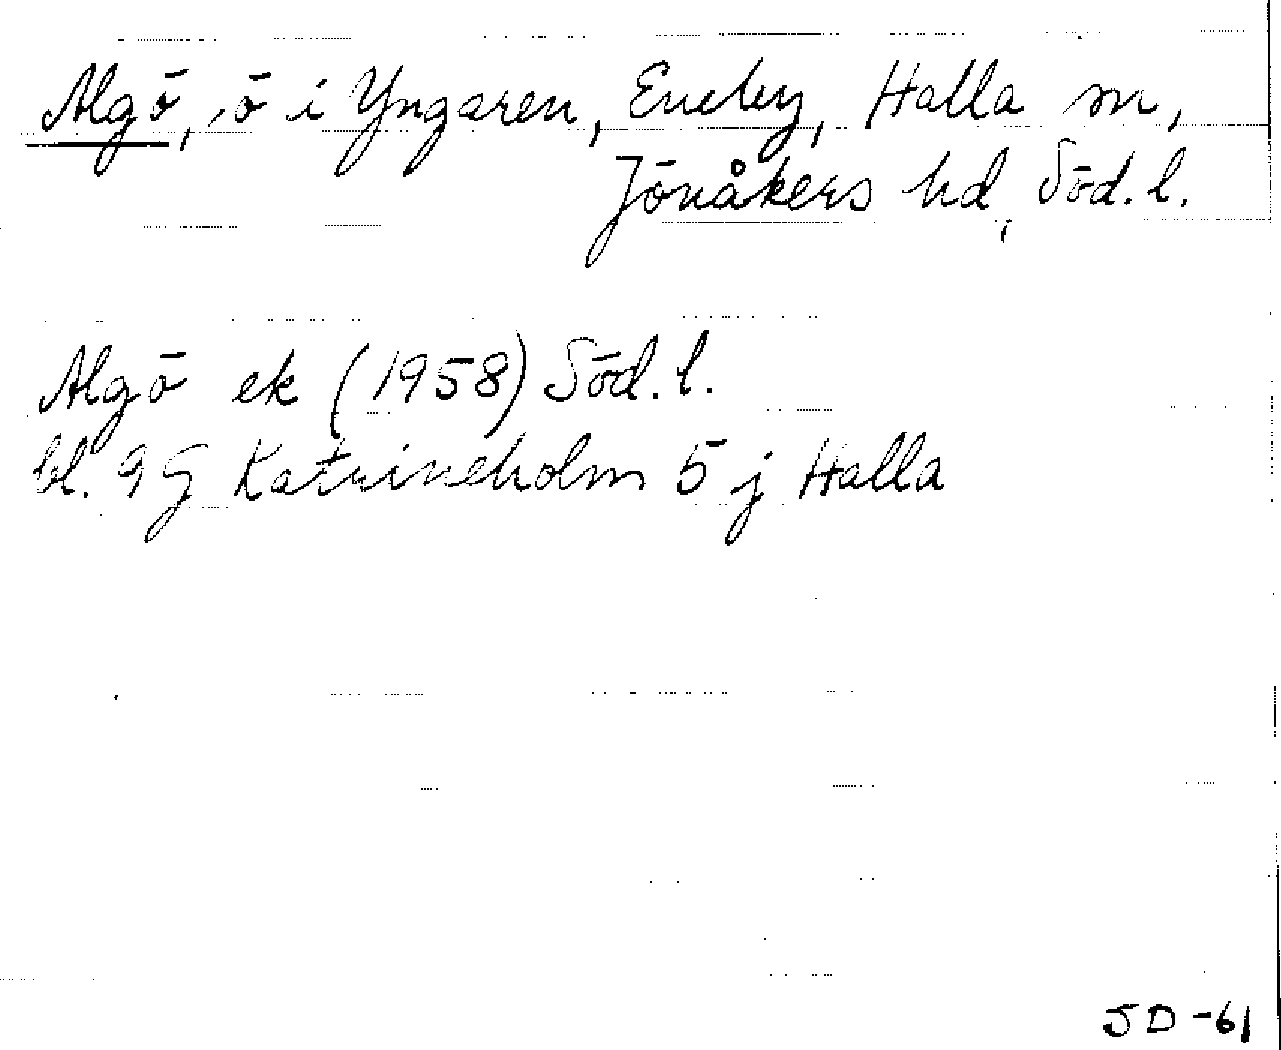 Algö, ö i Yngaren, Eneby, Halla sn,
Jönåkers hd, Söd. l.
Algö ek (1958) Söd. l.
bl. 9 G Katrineholm 5 j Halla
SD -61